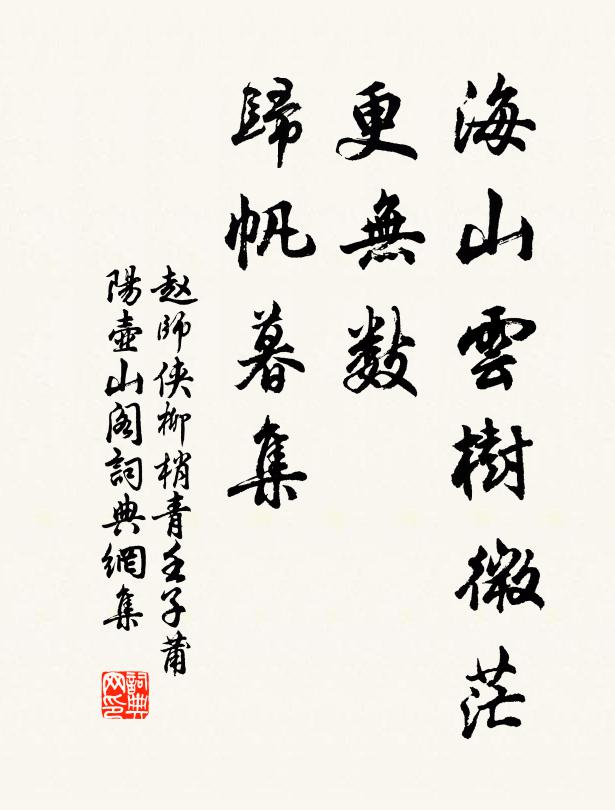 海山雲樹微茫
更無數
歸帆暮集
赵師俠柳梢青壬子莆
陽壺山阁詞典網集
詞典网印